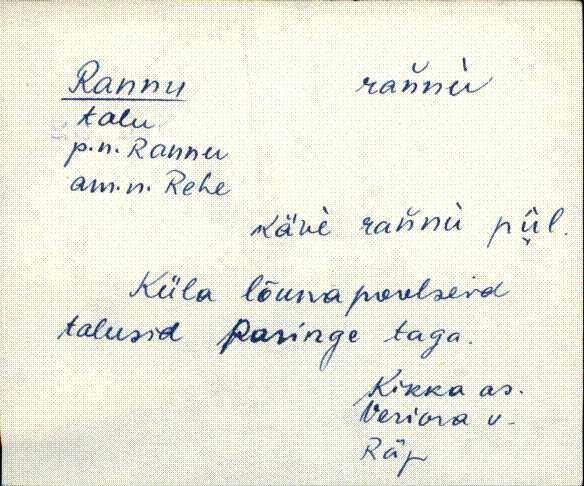 Rannu rańnù
talu
p.n. Rannu
am.n. Rehe
käve̬ rańnù piil.
Küla lõunapoolseid
talusid Paringe taga.
Kikka as.
Veriora v.
Räp